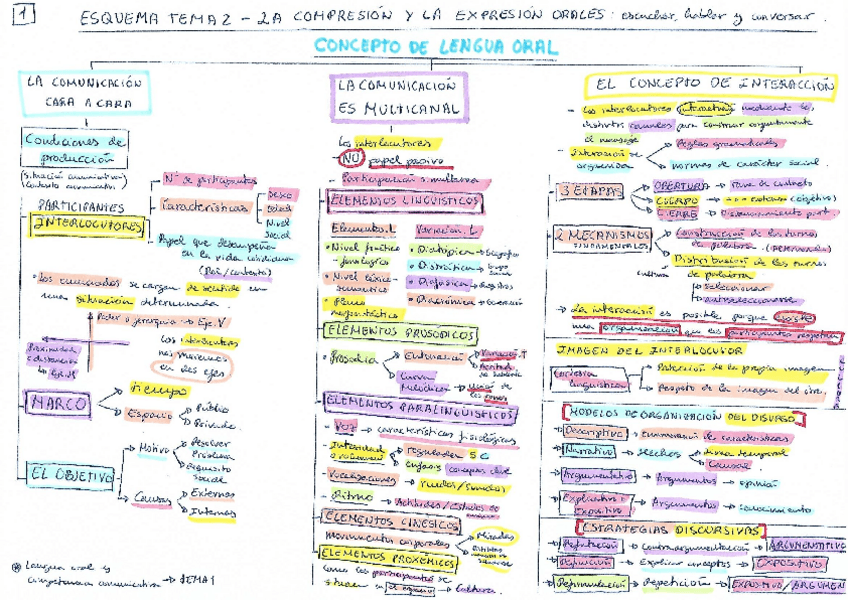 1
ESQUEMA TEMA 2 - LA COMPRESIÓN Y LA EXPRESIÓN ORALES: escuchar, hablar y conversar.
CONCEPTO DE LENGUA ORAL
LA COMUNICACIÓN
CARA A CARA
Condiciones de
producción
(situación comunicativa)
PARTICIPANTES
INTERLOCUTORES
Nº de participantes
Características
Sexo
edad
Nivel
social
Papel que desempeñan
en la vida cotidiana
(Rol/contexto)
Los enunciados se cargan de sentido en
una situación determinada
Poder o jerarquía → Eje V
Los interlocutores
nos movemos
en dos ejes
MARCO
tiempo
Espacio
Público
Privado
EL OBJETIVO
Motivo
Resolver
Problema
Requisito
social
Causas
Externas
Internas
Lengua oral y
competencia comunicativa → TEMA 1
LA COMUNICACIÓN
ES MULTICANAL
Los interlocutores
NO papel pasivo
Participación simultánea
ELEMENTOS LINGÜÍSTICOS
Elementos L
Variación L
Nivel fonético-
fonológico
Nivel léxico-
semántico
Plano
morfosintáctico
Diatópica
Diastrática
Diafásica → Registros
Diacrónica → Generación
ELEMENTOS PROSÓDICOS
Prosodia
Entonación
Variación T
Curvas
Melódicas
ELEMENTOS PARALINGÜÍSTICOS
VOZ → características fisiológicas
Intensidad
o volumen
reguladas S C
énfasis conceptos clave
Vocalizaciones → ruidos/sonidos
Ritmo → Actitudes/Estados de
ELEMENTOS CINÉSICOS
movimientos corporales
Miradas
ELEMENTOS PROXÉMICOS
como los participantes se
sitúan en el espacio → Cultura.
EL CONCEPTO DE INTERACCIÓN
Los interlocutores interactúan mediante los
distintos canales para construir conjuntamente
el mensaje
Interacción se
organiza
Reglas gramaticales
normas de carácter social.
3 ETAPAS
APERTURA → toma de contacto
CUERPO
(objetivo)
CIERRE → Distanciamiento part.
2 MECANISMOS
FUNDAMENTALES
Construcción de los turnos
de palabra
Distribución de los turnos
de palabra
cultura
seleccionar
autoseleccionarse
La interacción es posible porque existe
una organización que los participantes respetan
IMAGEN DEL INTERLOCUTOR
Cortesía
lingüística
Potenciación de la propia imagen
Respeto de la imagen del otro.
MODELOS DE ORGANIZACIÓN DEL DISCURSO
Descriptivo → Enumeración de características
Narrativo → Hechos
Línea temporal
Causal
Argumentativo → Argumentos → opinión
Explicativo o
Expositivo → Argumentos → conocimiento
ESTRATEGIAS DISCURSIVAS
Refutación → contraargumentación → ARGUMENTATIVO
Definición → Explicar conceptos → EXPOSITIVO
Reformulación → Repetición → EXPOSITIVO/ARGUMEN